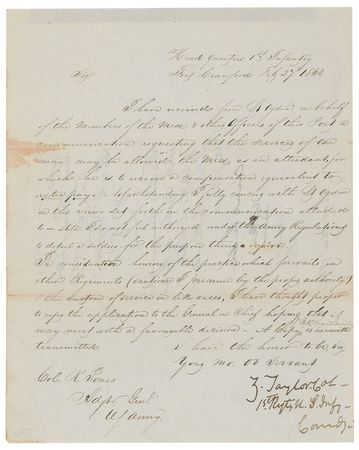 Head Quarters 1st Infantry
Fort Crawford Feby 27th 18
Sir,
I have received from Lt Ogden in behalf
of the Members of the Mess & other Officers of this Post a
communication requesting that the services of one
man may be allowed the Mess as an attendant for
which he is to receive a compensation equivalent to
extra pay. Notwithstanding I fully concur with Lt Ogden
in the views set forth in the communication attended
to - Still I do not feel authorized under the Army Regulations
to detail a soldier for the purpose therein
In consideration however of the practice which prevails in
other Regiments (sanctioned I presume by the proper authority)
& the custom of service in like cases, I have thought proper
to refer the application to the General in Chief hoping that it
may meet with a favourable decision - A Copy is herewith
transmitted
I have the honor to be Sir
Your Mo. Ob Servant
Z. Taylor Col.
1st Regt U. S. Infy
Comdg
Col. R. Jones
Adjt Genl
US Army